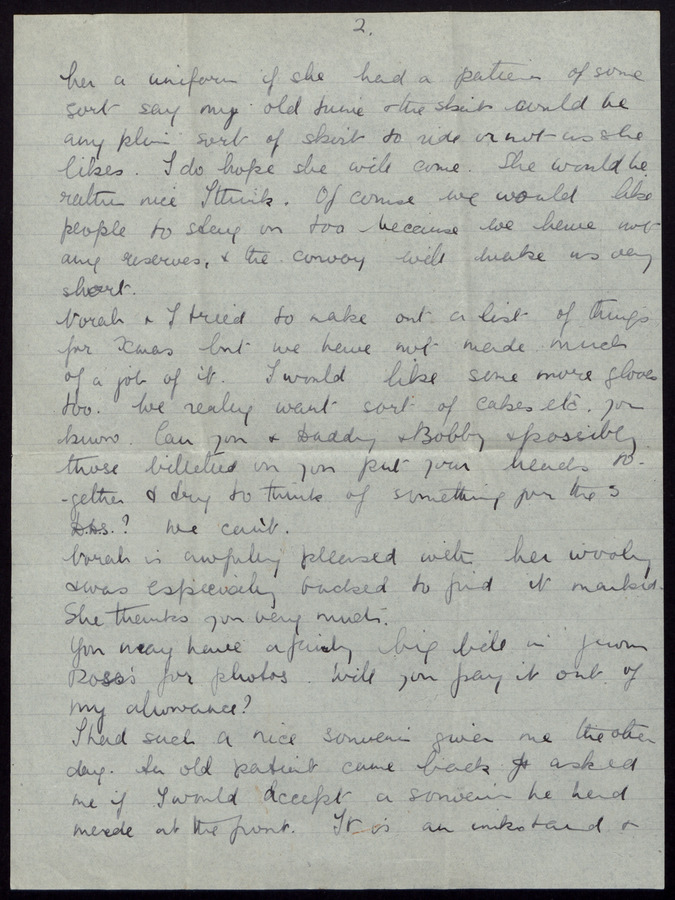 2.
her a uniform if she had a pattern of some
sort say my old tunic & the skirt could be
any plain sort of skirt to ride or not as she
likes. I do hope she will come. She would be
rather nice I think. Of course we would like
people to stay on too because we have not
any reserves, & the convoy will make us very
short.
Norah & I tried to make out a list of things
for Xmas but we have not made much
of a job of it. I would like some more gloves
too. We really want sort of cakes etc. you
know. Can you & Daddy & Bobby & possibly
those billeted on you put your heads to-
-gether & try to think of something for the 3
? We can't.
Norah is awfully pleased with her wooly
& was especially bucked to find it marked.
She thanks you very much.
You may have a fairly big bill in from
Ross's for photos. Will you pay it out of
my allowance?
I had such a nice souvenir given me the other
day. An old patient came back & asked
me if I would accept a souvenir he had
made at the front. It is an inkstand &